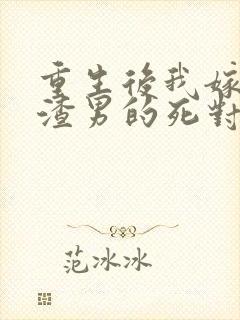 重生後我嫁
渣男的死對
范冰冰